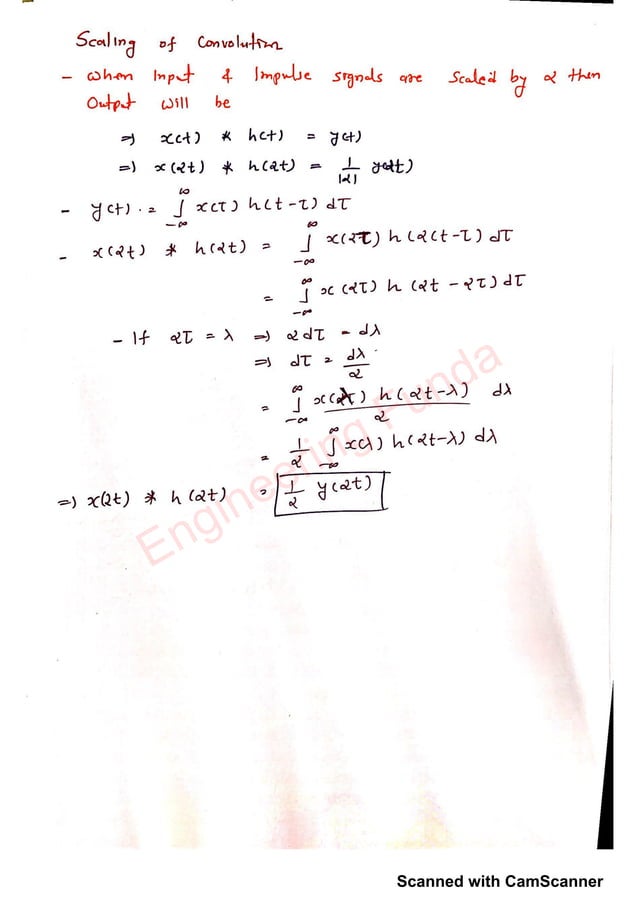 Scaling of Convolution
- When Input & Impulse signals are Scaled by α then
Output will be
⇒ x(t) * h(t) = y(t)
⇒ x(αt) * h(αt) = 1/|α| y(αt)
- y(t) = ∫_{-∞}^{∞} x(τ) h(t-τ) dτ
- x(αt) * h(αt) = ∫_{-∞}^{∞} x(ατ) h(α(t-τ) dτ
= ∫_{-∞}^{∞} x(ατ) h(αt - ατ) dτ
- If ατ = λ ⇒ αdτ = dλ
⇒ dτ = dλ/α
= ∫_{-∞}^{∞} x(λ) h(αt-λ)/α dλ
= 1/α ∫_{-∞}^{∞} x(λ) h(αt-λ) dλ
⇒ x(αt) * h(αt) = 1/α y(αt)
Engineering Funda
Scanned with CamScanner